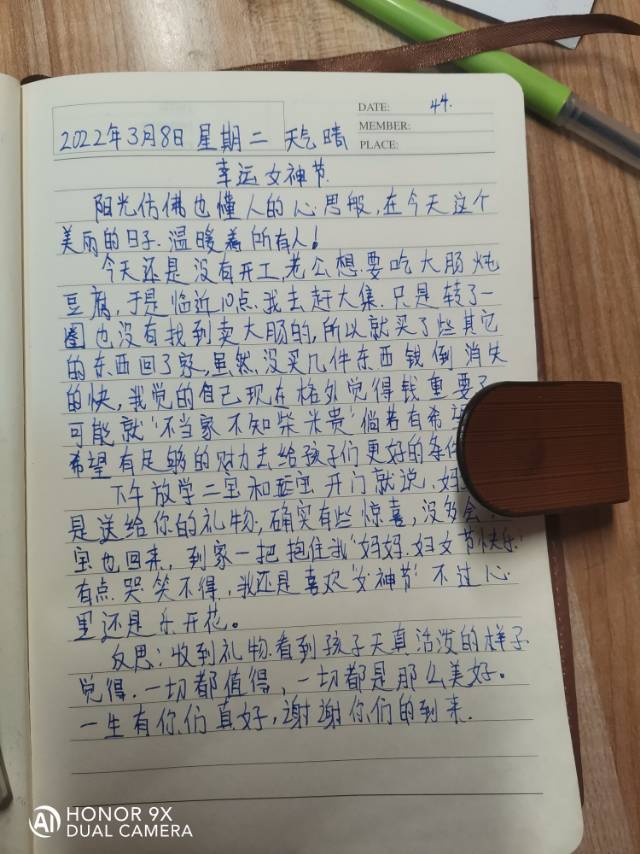 DATE: 44.
MEMBER:
PLACE:
2022年3月8日 星期二 天气晴
幸运女神节
阳光仿佛也懂人的心思般,在今天这个
美丽的日子.温暖着所有人!
今天还是没有开工,老公想要吃大肠炖
豆腐,于是临近10点.我去赶大集.只是转了一
圈也没有找到卖大肠的,所以就买了些其它
的东西回了家,虽然没买几件东西钱倒消失
的快,我觉的自己现在格外觉得钱重要了
可能就'不当家不知柴米贵'倘若有希望
希望有足够的财力去给孩子们更好的条件
下午放学二宝和三宝开门就说,妈
是送给你的礼物,确实有些惊喜,没多会
宝也回来,到家一把抱住我"妈妈.妇女节快乐
有点哭笑不得,我还是喜欢'女神节'不过心
里还是乐开花。
反思:收到礼物.看到孩子天真活泼的样子.
觉得.一切都值得,一切都是那么美好。
一生有你们真好,谢谢你们的到来.
HONOR 9X
DUAL CAMERA